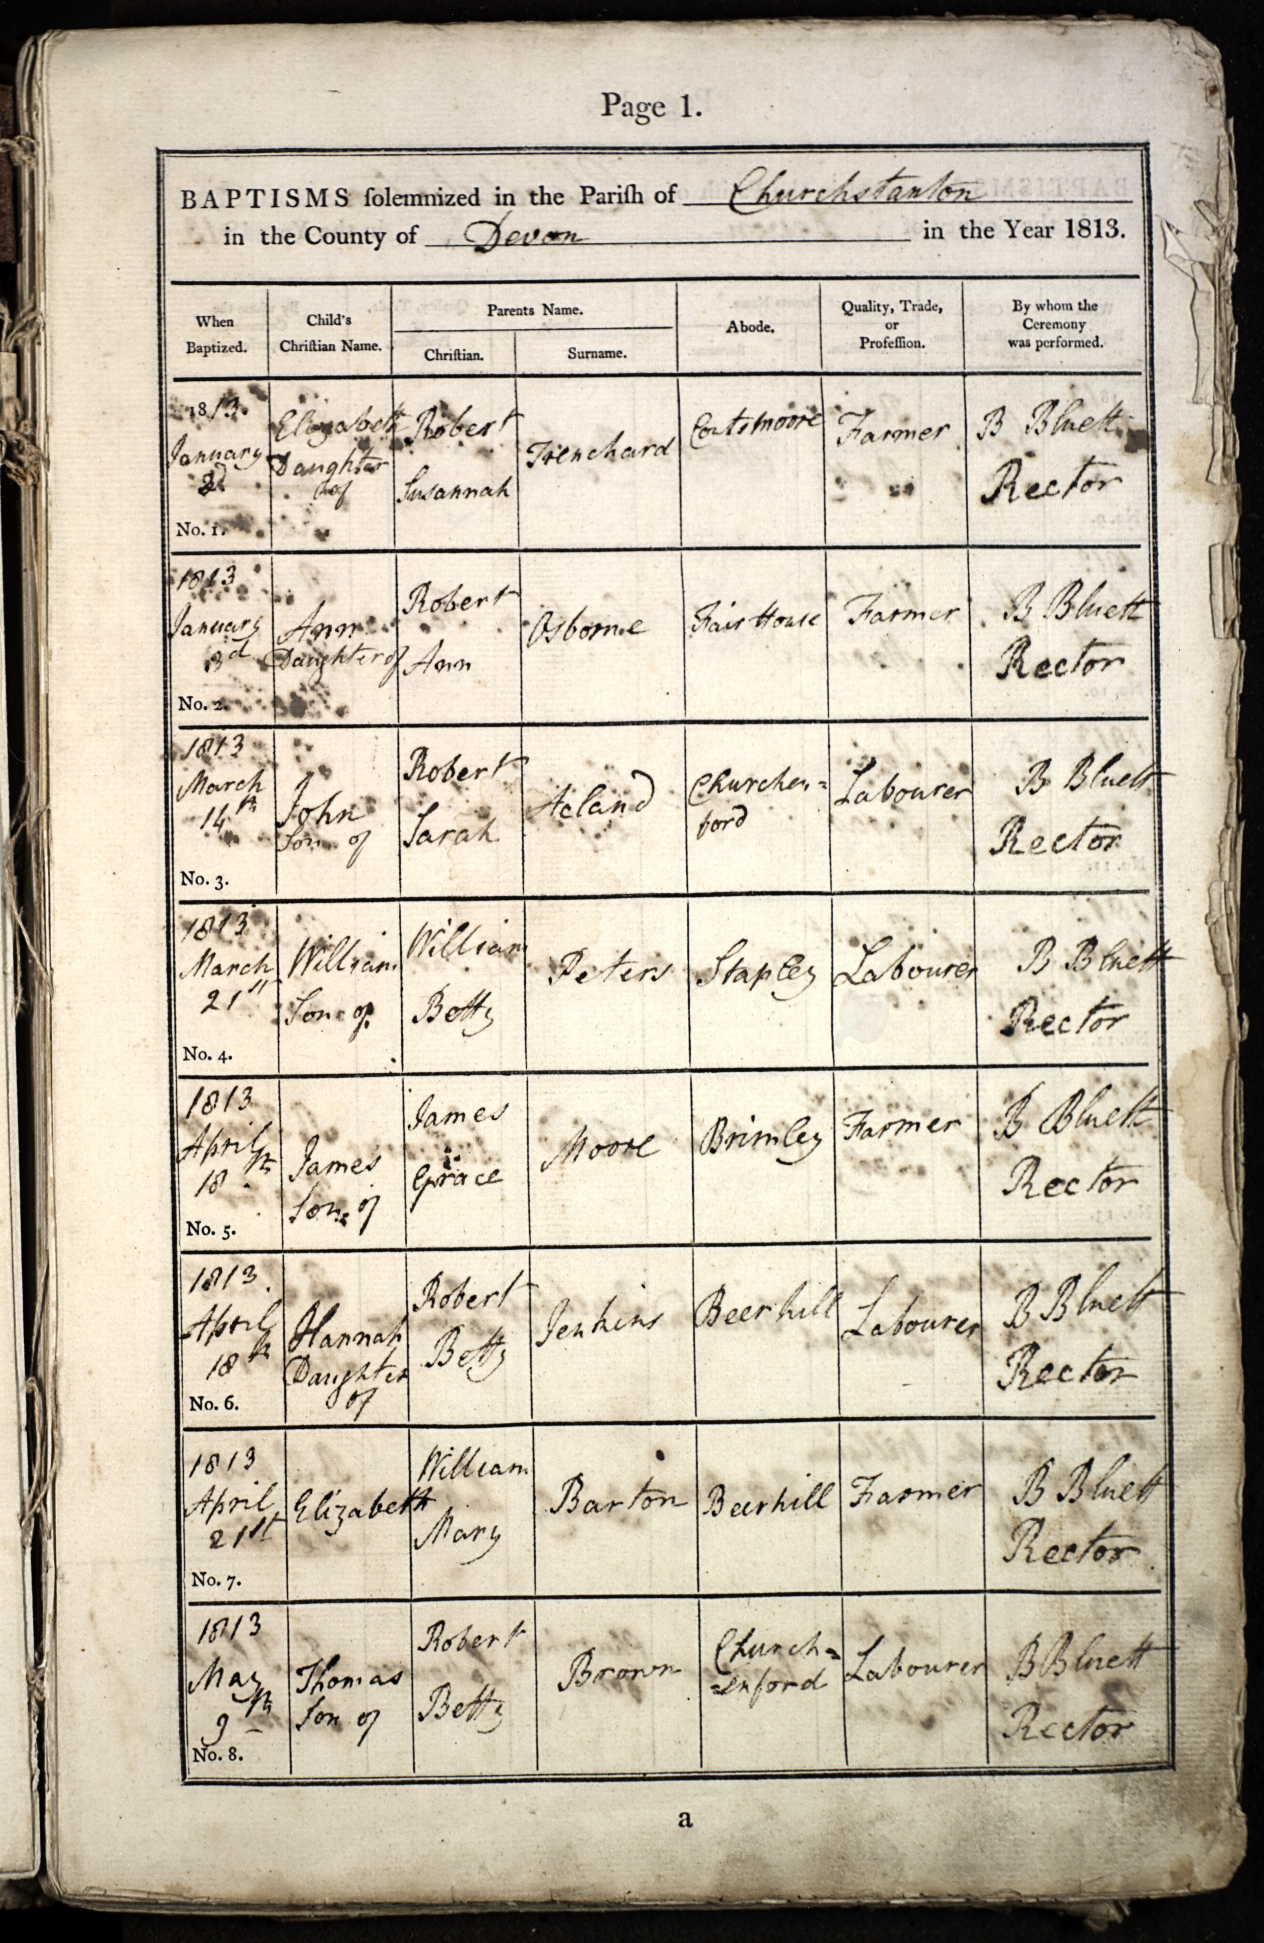 Page 1.
BAPTISMS ſolemnized in the Pariſh of Churchstanton
in the County of Devon in the Year 1813.
When
Baptized.
Child's
Chriſtian Name.
Parents Name.
Chriſtian.
Surname.
Abode.
Quality, Trade,
or
Profeſſion.
By whom the
Ceremony
was performed.
1813.
January
2d
No. 1.
Elizabeth
Daughter
of
Robert
Susannah
Trenchard
Coatsmoore
Farmer
B Bluett
Rector
1813
January
3d
No. 2.
Ann
Daughter of
Robert
Ann
Osborne
Fair House
Farmer
B Bluett
Rector
1813
March
14th
No. 3.
John
Son of
Robert
Sarah
Acland
Churchen=
ford
Labourer
B Bluett
Rector
1813
March
21st
No. 4.
William
Son of
William
Betty
Peters
Stapley
Labourer
B Bluett
Rector
1813
April
18th
No. 5.
James
Son of
James
Grace
Moore
Brimley
Farmer
B Bluett
Rector
1813
April
18th
No. 6.
Hannah
Daughter
of
Robert
Betty
Jenkins
Beerhill
Labourer
B Bluett
Rector
1813
April
21st
No. 7.
Elizabeth
William
Mary
Barton
Beerhill
Farmer
B Bluett
Rector
1813
May
9th
No. 8.
Thomas
Son of
Robert
Betty
Brown
Church=
=enford
Labourer
B Bluett
Rector
a